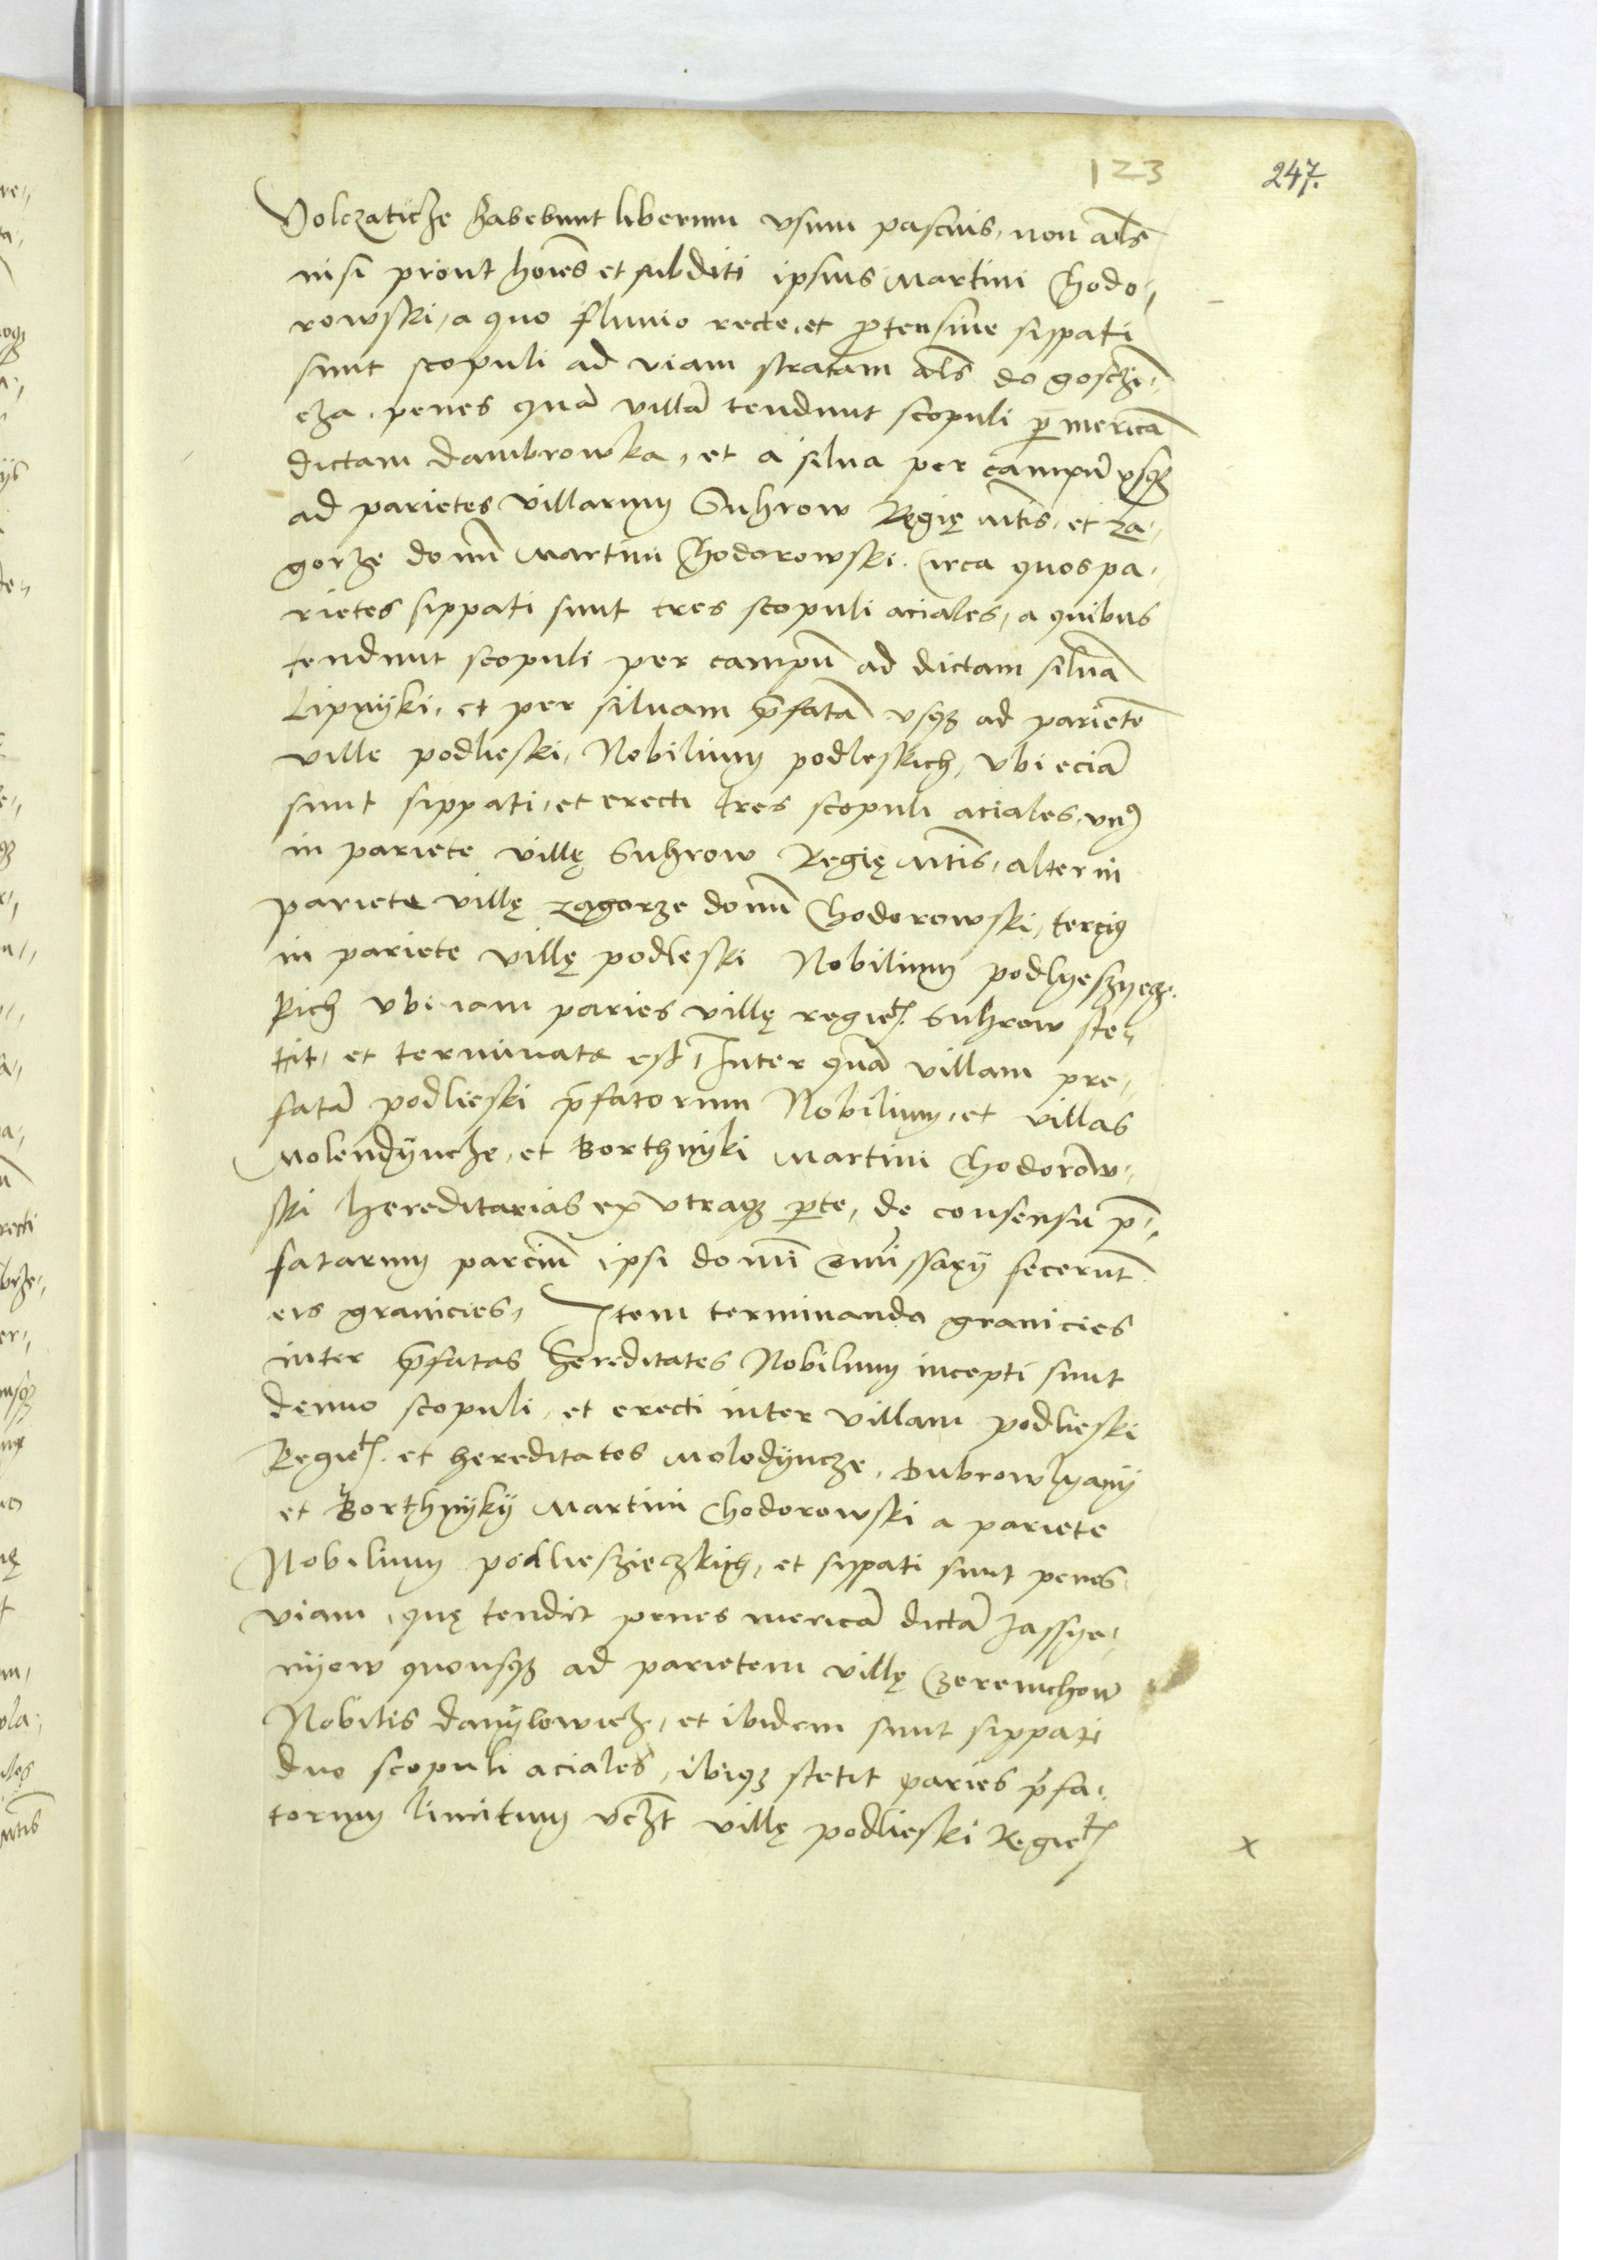 123
247.
Volczaticze habebunt liberum vsum pascuis, non als
nisi prout hoies et subditi ipsius Martini Chodo,,
rowski, a quo fluuio recte, et ptensiue sippati
sunt scopuli ad viam stratam als do gosczi,,
cza, penes quā villā tendunt scopuli p mericā
dictam dambrowka, et a silua per campū vsq
ad parietes villarum Suhrow Regię Mtis, et Za,
gorze domī Martini Chodorowski. Circa quos pa,
rietes sippati sunt tres scopuli aciales, a quibus
tendunt scopuli per campū ad dictam siluā
Lipnyki, et per siluam pfatā vsq ad parietē
ville podlieski, Nobilium podleskich, vbi eciā
sunt sippati, et erecti tres scopuli aciales, vn9
in pariete villę Suhrow Regię Mtis, alter in
pariete villę Zagorze domī Chodorowski, terciq
in pariete villę podleski Nobilium podlyeszyecz,
kich vbi iam paries villę regiet. Suhrow ste,,
tit, et terminata est, Inter quā villam pre,,
fatā podlieski pfatorum Nobilium, et villas
Molendyncze, et Borthnyki Martini Chodorow,,
ski hereditarias ex vtraq pte, de consensu p,,
fatarum parciū ipsi domī Comissary fecerunt
eis granicies, Item terminando granicies
inter pfatas hereditates Nobilium incepti sunt
denuo scopuli, et erecti inter villam podlieski
Regiet. et hereditates Molodyncze, Dubrowlyany
et Borthnyky Martini Chodorowski a pariete
Nobilium podlieszieczkich, et sippati sunt penes
viam, quę tendit penes mericā dictā Jassye,,
nyow quousq ad parietem villę Czeremchow
Nobilis danylowicz, et ibidem sunt sippati
duo scopuli aciales, ibiq stetit paries pfa,,
torum limitum vczt villę podlieski Regiet
x